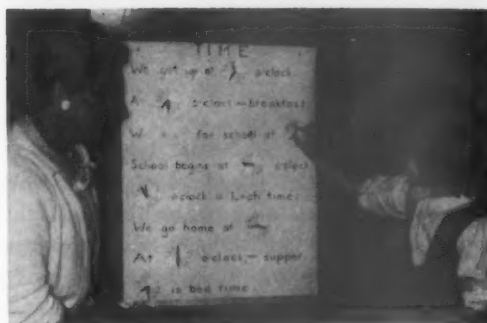 TIME
We get up at o'clock
At o'clock - breakfast
We for school at
School begins at o'clock
o'clock is lunch time
We go home at
At o'clock - supper
is bed time